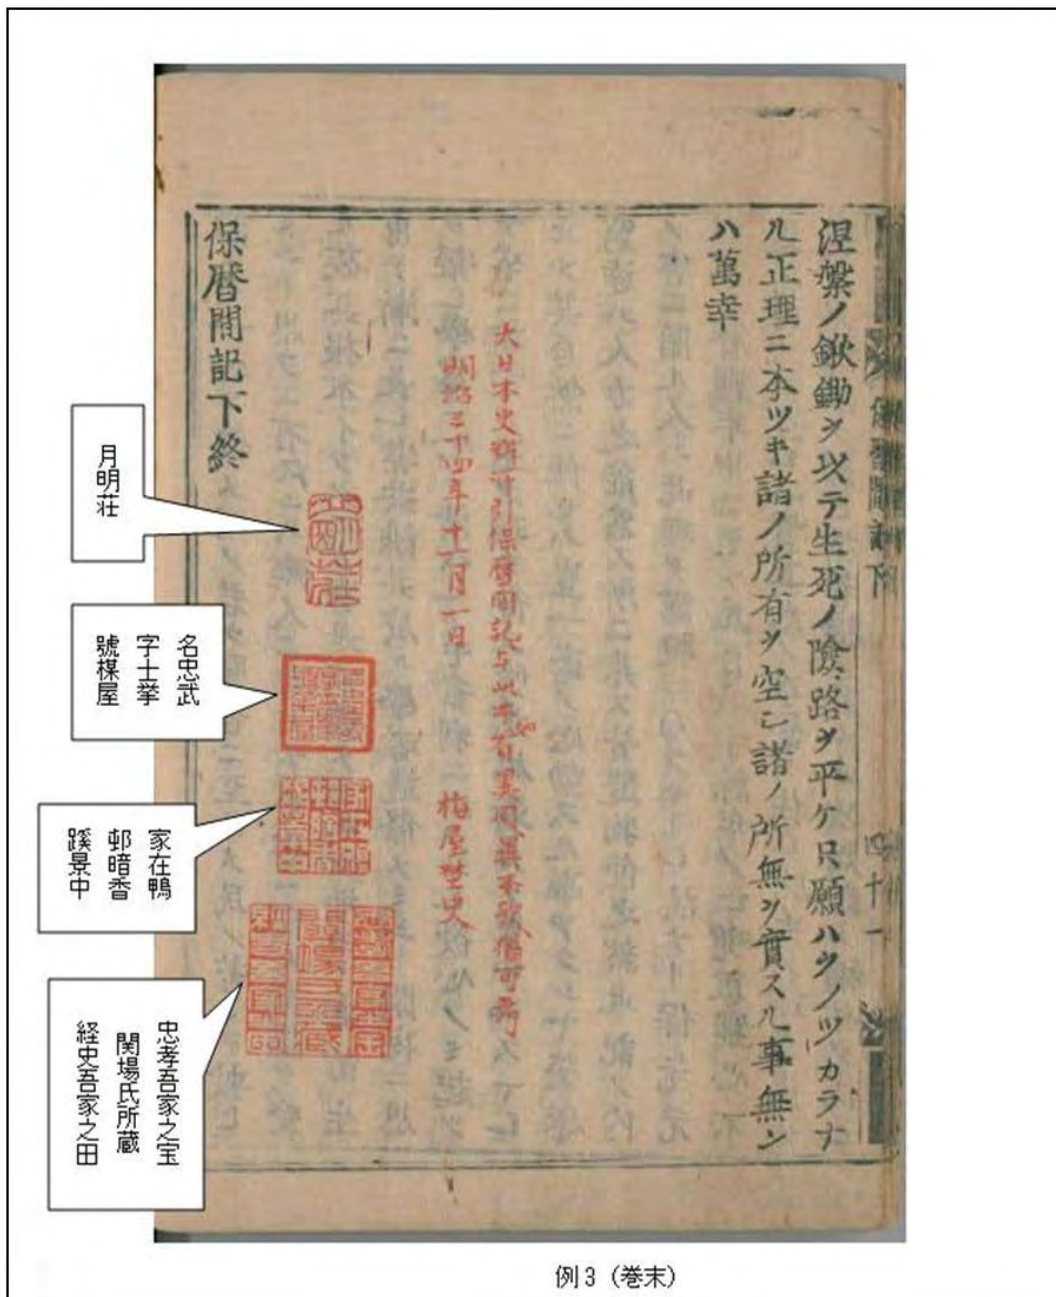 涅槃ノ鍬鋤ヲ以テ生死ノ険路ヲ平ケ只願ハクノツカラナ
ル正理ニ本ツキ諸ノ所有ヲ空シ諸ノ所無ヲ實スル事無ン
ハ萬幸
大日本史
引保暦間記与此本有異同
明治三十四年十一月一日
梅屋埜史
保暦間記下終
四十一
月明荘
名忠武
字士挙
號楳屋
家在鴨
邨暗香
蹊景中
忠孝吾家之宝
関場氏所蔵
経史吾家之田
例3（巻末）